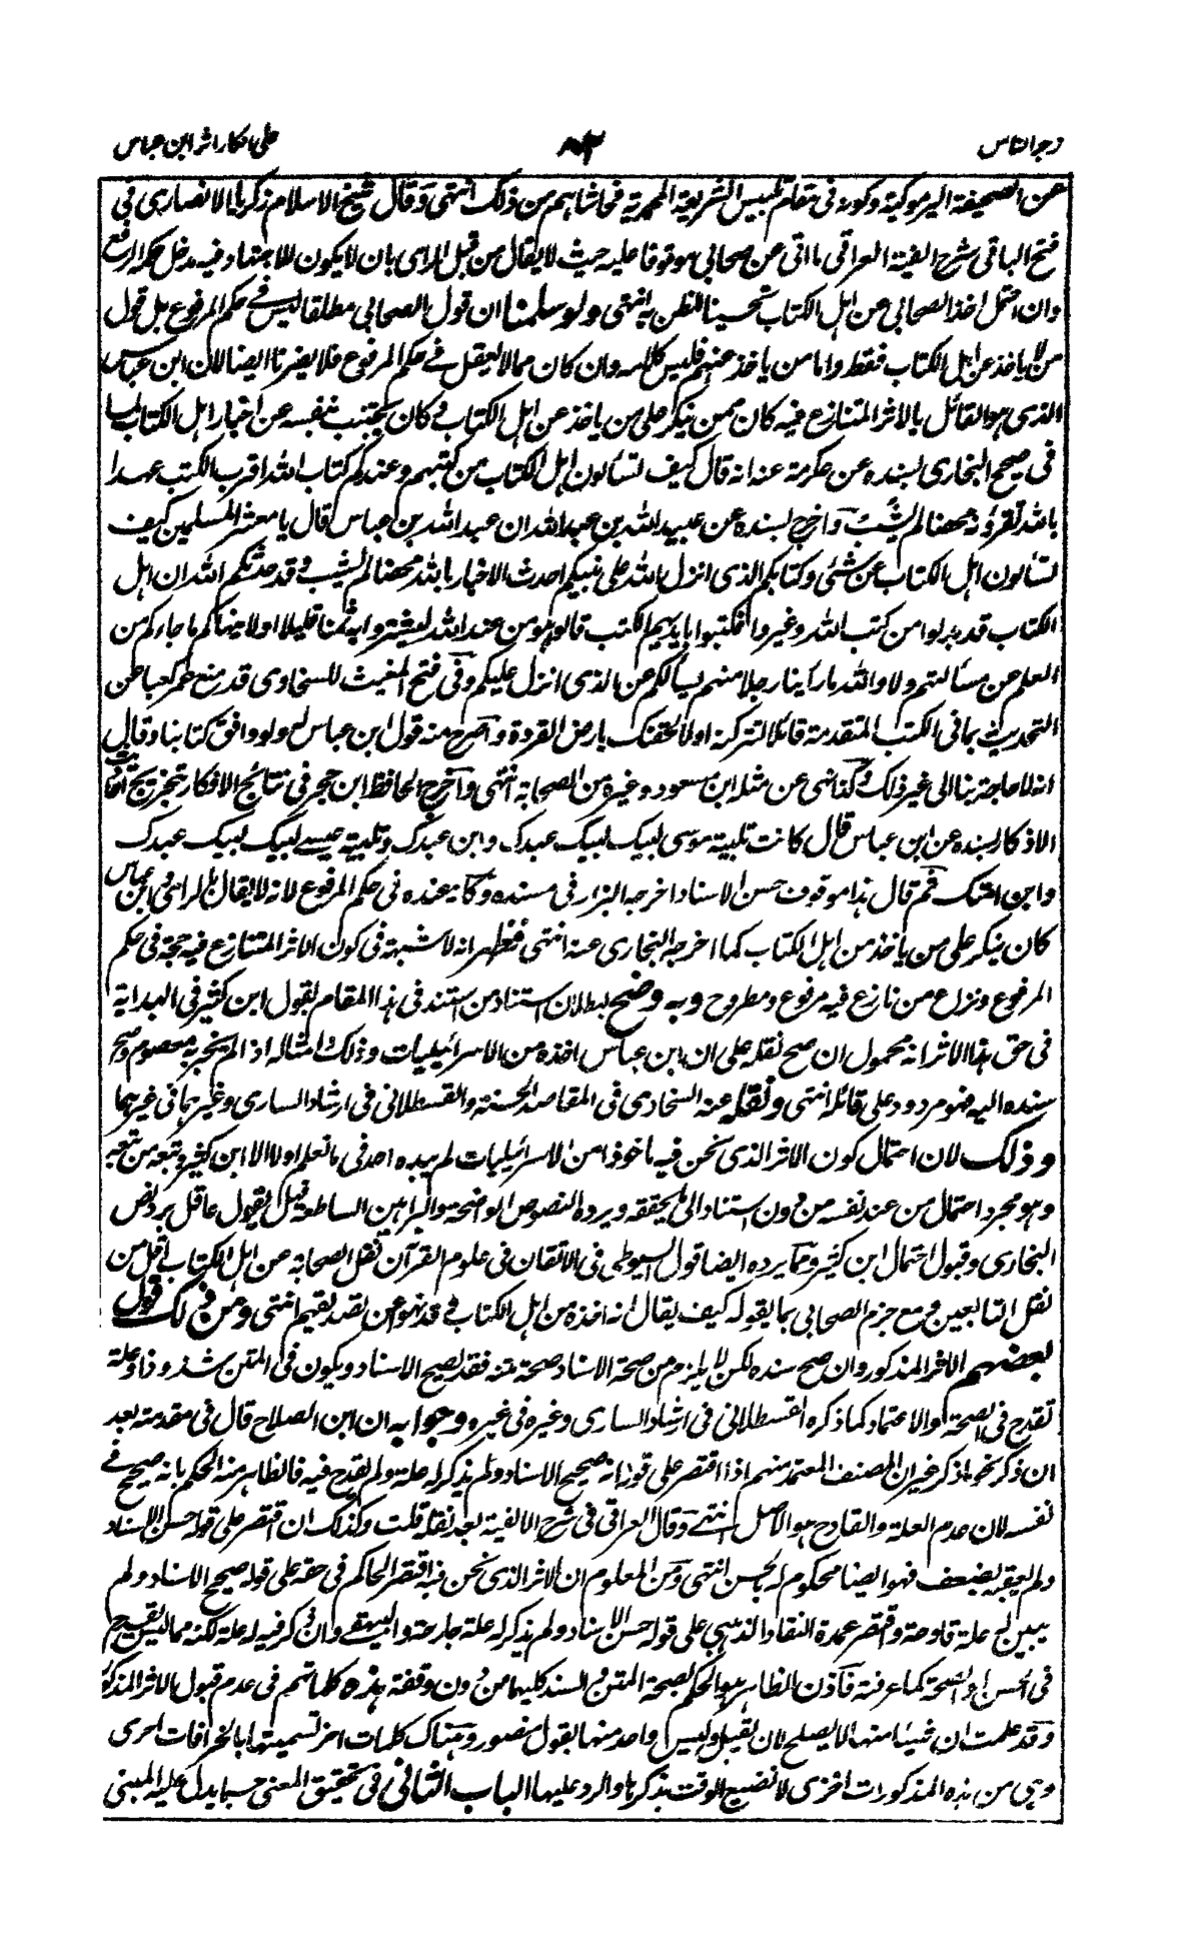 زجر الناس ۸۲ علی انکار اثر ابن عباس
عن الصحيفة اليرموكية وكونه فی مقام تلبيس الشريعة المحمدية فحاشاهم من ذلك انتهى وقال شيخ الاسلام زكريا الانصاری فی
فتح الباقی شرح الفية العراقی ما اتى عن صحابی موقوفا عليه حيث لا يقال من قبل الرای بان لا يكون للاجتهاد فيه مدخل حكمه الرفع
وان احتمل اخذ الصحابی عن اہل الكتاب تحسينا للظن به انتهى ولو سلمنا ان قول الصحابی مطلقا ليس فے حكم المرفوع بل قول
من لا ياخذ عن اہل الكتاب فقط واما من ياخذ عنهم فليس كلامه وان كان مما لا يعقل فے حكم المرفوع فلا يضرنا ايضا لان ابن عباس
الذی هو القائل بالاثر المتنازع فيه كان ممن ينكر على من ياخذ عن اہل الكتاب و كان يجتنب بنفسه عن اخبار اہل الكتاب لما
فی صحيح البخاری بسنده عن عكرمة عنه انه قال كيف تسألون اہل الكتاب عن كتبهم وعندكم كتاب الله اقرب الكتب عهدا
بالله تقرؤنه محضا لم يشب واخرج بسنده عن عبيد الله بن عبد الله ان عبد الله بن عباس قال يا معشر المسلمين كيف
تسألون اہل الكتاب عن شئی وكتابكم الذی انزل الله على نبيكم احدث الاخبار بالله محضا لم يشب و قد حدثكم الله ان اہل
الكتاب قد بدلوا من كتب الله وغيروا فكتبوا بايديهم الكتب قالوا هو من عند الله ليشتروا به ثمنا قليلا اولا ينهاكم ما جاءكم من
العلم عن مسألتهم ولا والله ما رأينا رجلا منهم يسألكم عن الذی انزل عليكم وفی فتح المغيث للسخاوی قد منع عمر كعبا عن
التحديث بما فی الكتب المتقدمة قائلا لتتركنه او لالحقنك بارض القردة واصرح منه قول ابن عباس له ولو وافق كتابنا وقال
انه لا حاجة بنا الى غير ذلك و كذا نهى عن مثله ابن مسعود وغيره من الصحابة انتهى واخرج الحافظ ابن حجر فی نتائج الافكار بتخريج احاديث
الاذكار بسنده عن ابن عباس قال كانت تلبية موسى لبيك لبيك عبدك وابن عبدك وتلبية عيسے لبيك لبيك عبدك
وابن امتك ثم قال هذا موقوف حسن الاسناد اخرجه البزار فی مسنده وكأنه عنده فی حكم المرفوع لانه لا يقال بالرای و ابن عباس
كان ينكر على من ياخذ من اہل الكتاب كما اخرجه البخاری عنه انتهى فظهر انه لا شبهة فی كون الاثر المتنازع فيه حجة فی حكم
المرفوع ونزاع من نازع فيه مرفوع ومطروح وبه وضح بطلان استناد من استند فی هذا المقام بقول ابن كثير فی البداية
فی حق هذا الاثر انه محمول ان صح نقله على ان ابن عباس اخذه من الاسرائيليات وذلك وامثاله اذا لم يخبر به معصوم وصح
سنده اليه فهو مردود على قائله انتهى ونقله عنه السخاوی فی المقاصد الحسنة والقسطلانی فی ارشاد الساری وغيرهما فی غيرهما
وذلك لان احتمال كون الاثر الذی نحن فيه ماخوذا من الاسرائيليات لم يبده احد فی ما نعلم اولا الا ابن كثير وتبعه من تبعه
وهو مجرد احتمال من عند نفسه من دون استناد الى ما يحققه ويرده النصوص الواضحة والبراہين الساطعة فهل يقول عاقل برد نص
البخاری وقبول احتمال ابن كثير ومما يرده ايضا قول السيوطی فی الاتقان فی علوم القرآن نقل الصحابة عن اہل الكتاب اقل من
نقل التابعين و مع جزم الصحابی بما يقوله كيف يقال انه اخذه من اہل الكتاب و قد نهوا عن تصديقهم انتهى ومن ذلك قول
بعضهم الاثر المذكور وان صح سنده لكن لا يلزم من صحة الاسناد صحة متنه فقد يصح الاسناد ويكون فی المتن شذوذ او علة
تقدح فی الصحة والاعتماد كما ذكره القسطلانی فی ارشاد الساری وغيره فی غيره وجوابه ان ابن الصلاح قال فی مقدمته بعد
ان ذكر نحو ما ذكر غير ان المصنف المعتمد منهم اذا اقتصر على قوله انه صحيح الاسناد ولم يذكر له علة ولم يقدح فيه فالظاهر منه الحكم بانه صحيح فے
نفسه لان عدم العلة والقادح هو الاصل انتهے وقال العراقی فی شرح الالفية بعد نقله قلت وكذلك ان اقتصر على قوله حسن الاسناد
ولم يعقبه بضعف فهو ايضا محكوم له بحسن انتهى ومن المعلوم ان الاثر الذی نحن فيه اقتصر الحاكم فی حقه على قوله صحيح الاسناد ولم
يبين له علة قادحة واقتصر عمدة النقاد الذهبی على قوله حسن الاسناد ولم يذكر له علة جارحة والبيهقے وان ذكر فيه له علة لكنه مما ليس بقدح
فی الحسن او الصحة كما عرفته فاذن الظاهر هو الحكم بصحة المتن والسند كليهما من دون وقفة هذه كلماتهم فی عدم قبول الاثر المذكور
وقد علمت ان شيئا منها لا يصلح لان يقبل وليس واحد منها بقول منصور وهناك كلمات اخر تسميتها بالخرافات احرى
وہی من هذه المذكورات اخزى لا نضيع الوقت بذكرها والرد عليها الباب الثانی فی تحقيق المعنى حسبما يدل عليه المبنى